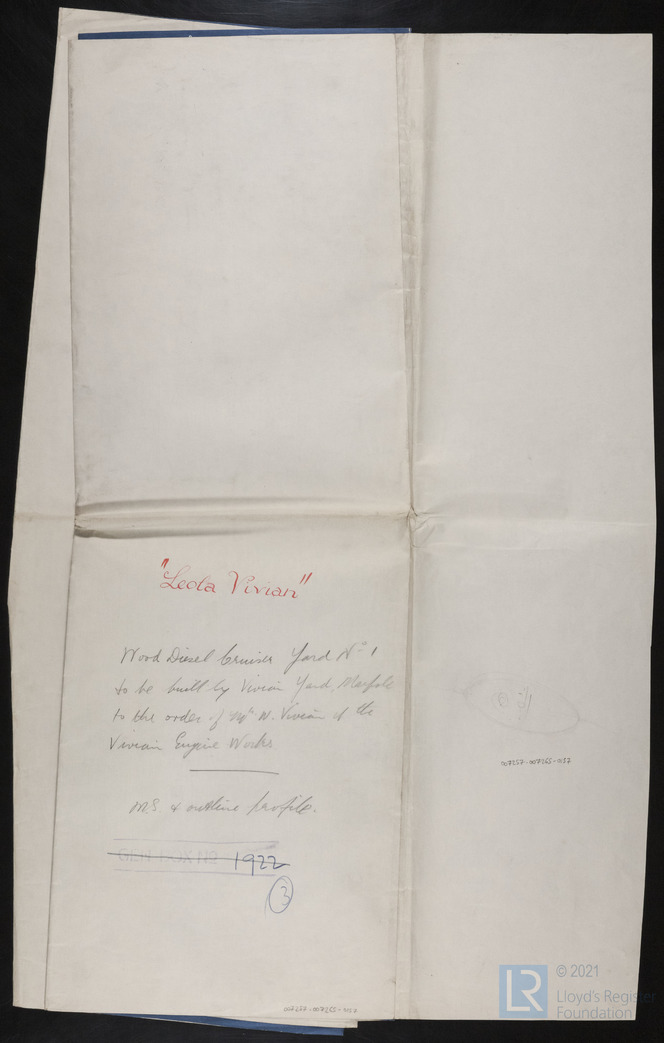 "Leola Vivian"
Wood Diesel Cruiser Yard Nº 1
to be built by Vivian Yard, Marpole
to the order of Mr W. Vivian of the
Vivian Engine Works
M.S. & outline profile.
GEN. BOX Nº 1922
3
007257-007365-0137
007257-007365-0137
LR
© 2021
Lloyd's Register
Foundation